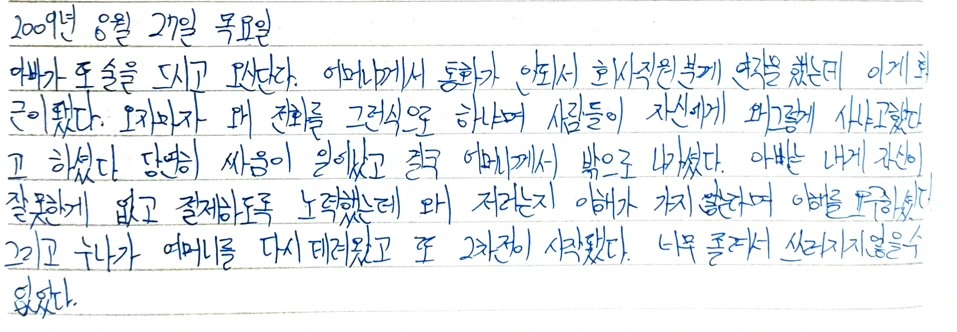 2009년 8월 27일 목요일
아빠가 또 술을 드시고 오신단다. 어머니께서 통화가 안되서 회사직원분께 연락을 했는데 이게 화
근이 됐다. 오자마자 왜 전화를 그런식으로 하냐며 사람들이 자신에게 왜그렇게 사냐고했다
고 하셨다 당연히 싸움이 일어났고 결국 어머니께서 밖으로 나가셨다. 아빠는 내게 자신이
잘못한게 없고 절제하도록 노력했는데 왜 저러는지 이해가 가지 않는다며 이해를 요구하셨다
그리고 누나가 어머니를 다시 데려왔고 또 2차전이 시작됐다. 너무 졸려서 쓰러지지 않을수
없었다.